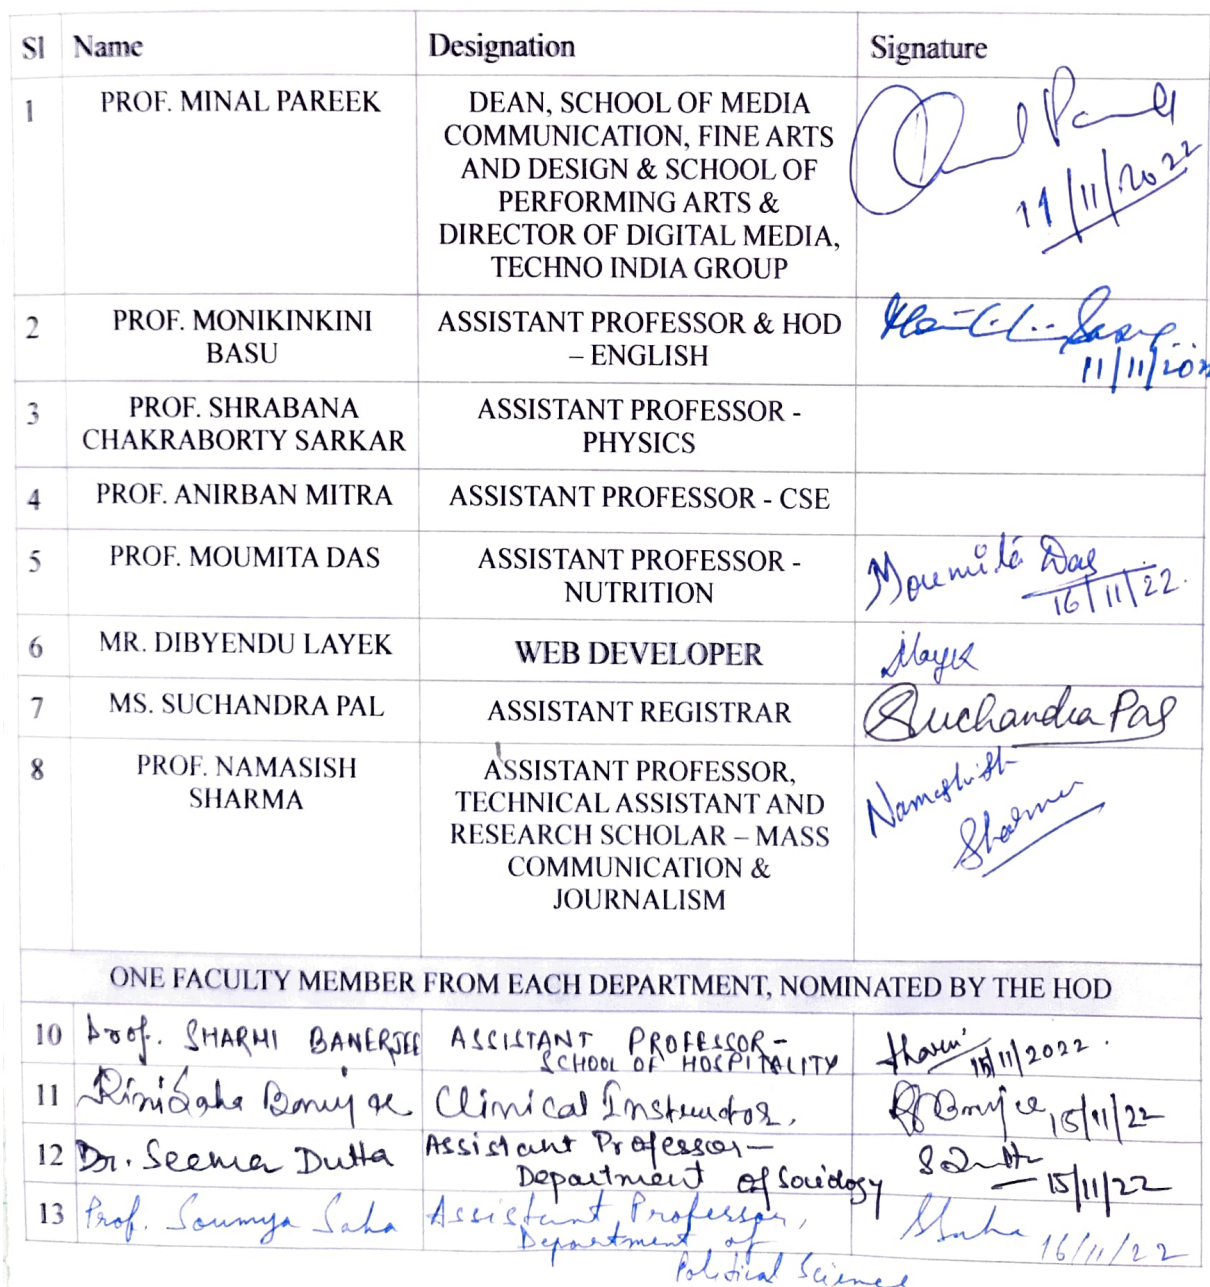 Sl Name Designation Signature
1 PROF. MINAL PAREEK DEAN, SCHOOL OF MEDIA
COMMUNICATION, FINE ARTS
AND DESIGN & SCHOOL OF
PERFORMING ARTS &
DIRECTOR OF DIGITAL MEDIA,
TECHNO INDIA GROUP
11/11/2022
2 PROF. MONIKINKINI ASSISTANT PROFESSOR & HOD
BASU – ENGLISH
11/11/202
3 PROF. SHRABANA ASSISTANT PROFESSOR -
CHAKRABORTY SARKAR PHYSICS
4 PROF. ANIRBAN MITRA ASSISTANT PROFESSOR - CSE
5 PROF. MOUMITA DAS ASSISTANT PROFESSOR - Moumita Das
NUTRITION 16/11/22.
6 MR. DIBYENDU LAYEK WEB DEVELOPER
7 MS. SUCHANDRA PAL ASSISTANT REGISTRAR Suchandra Pal
8 PROF. NAMASISH ASSISTANT PROFESSOR, Namashish
SHARMA TECHNICAL ASSISTANT AND Sharma
RESEARCH SCHOLAR – MASS
COMMUNICATION &
JOURNALISM
ONE FACULTY MEMBER FROM EACH DEPARTMENT, NOMINATED BY THE HOD
10 Prof. SHARMI BANERJEE ASSISTANT PROFESSOR - Sharmi
SCHOOL OF HOSPITALITY 15/11/2022.
11 Rini Saha Banerjee Clinical Instructor, 15/11/22
12 Dr. Seema Dutta Assistant Professor – S Dutta
Department of Sociology 15/11/22
13 Prof. Soumya Saha Assistant Professor, SSaha
Department of 16/11/22
Political Science